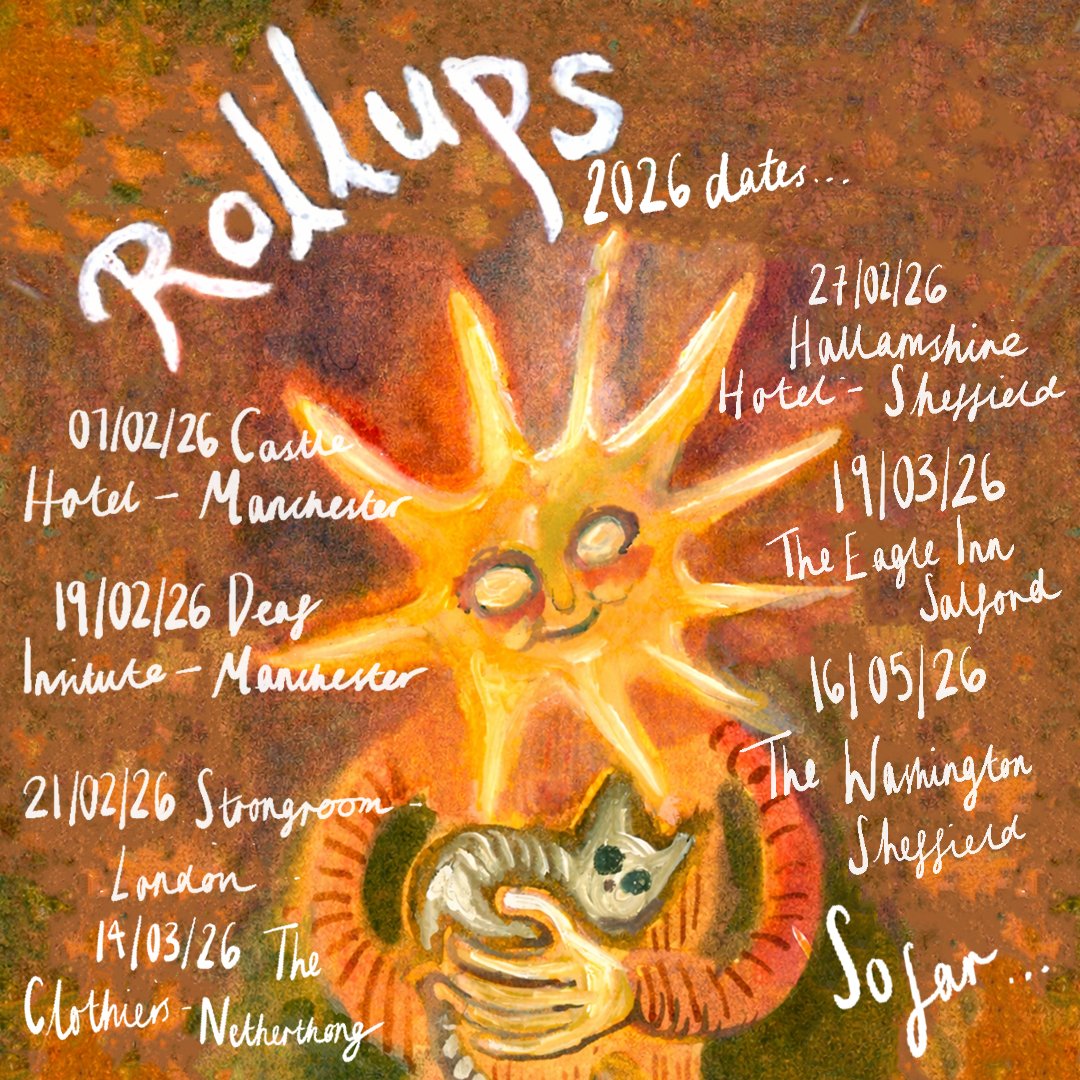 Rollups
2026 dates...
07/02/26 Castle
Hotel - Manchester
19/02/26 Deaf
Insitute - Manchester
21/02/26 Strongroom -
London
14/03/26 The
Clothiers - Netherthong
27/02/26
Hallamshire
Hotel - Sheffield
19/03/26
The Eagle Inn
Salford
16/05/26
The Washington
Sheffield
So far...